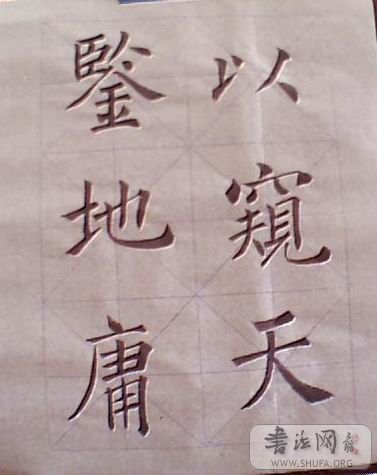 以窺天
鍳地庸
書法网
WWW.SHUFA.ORG